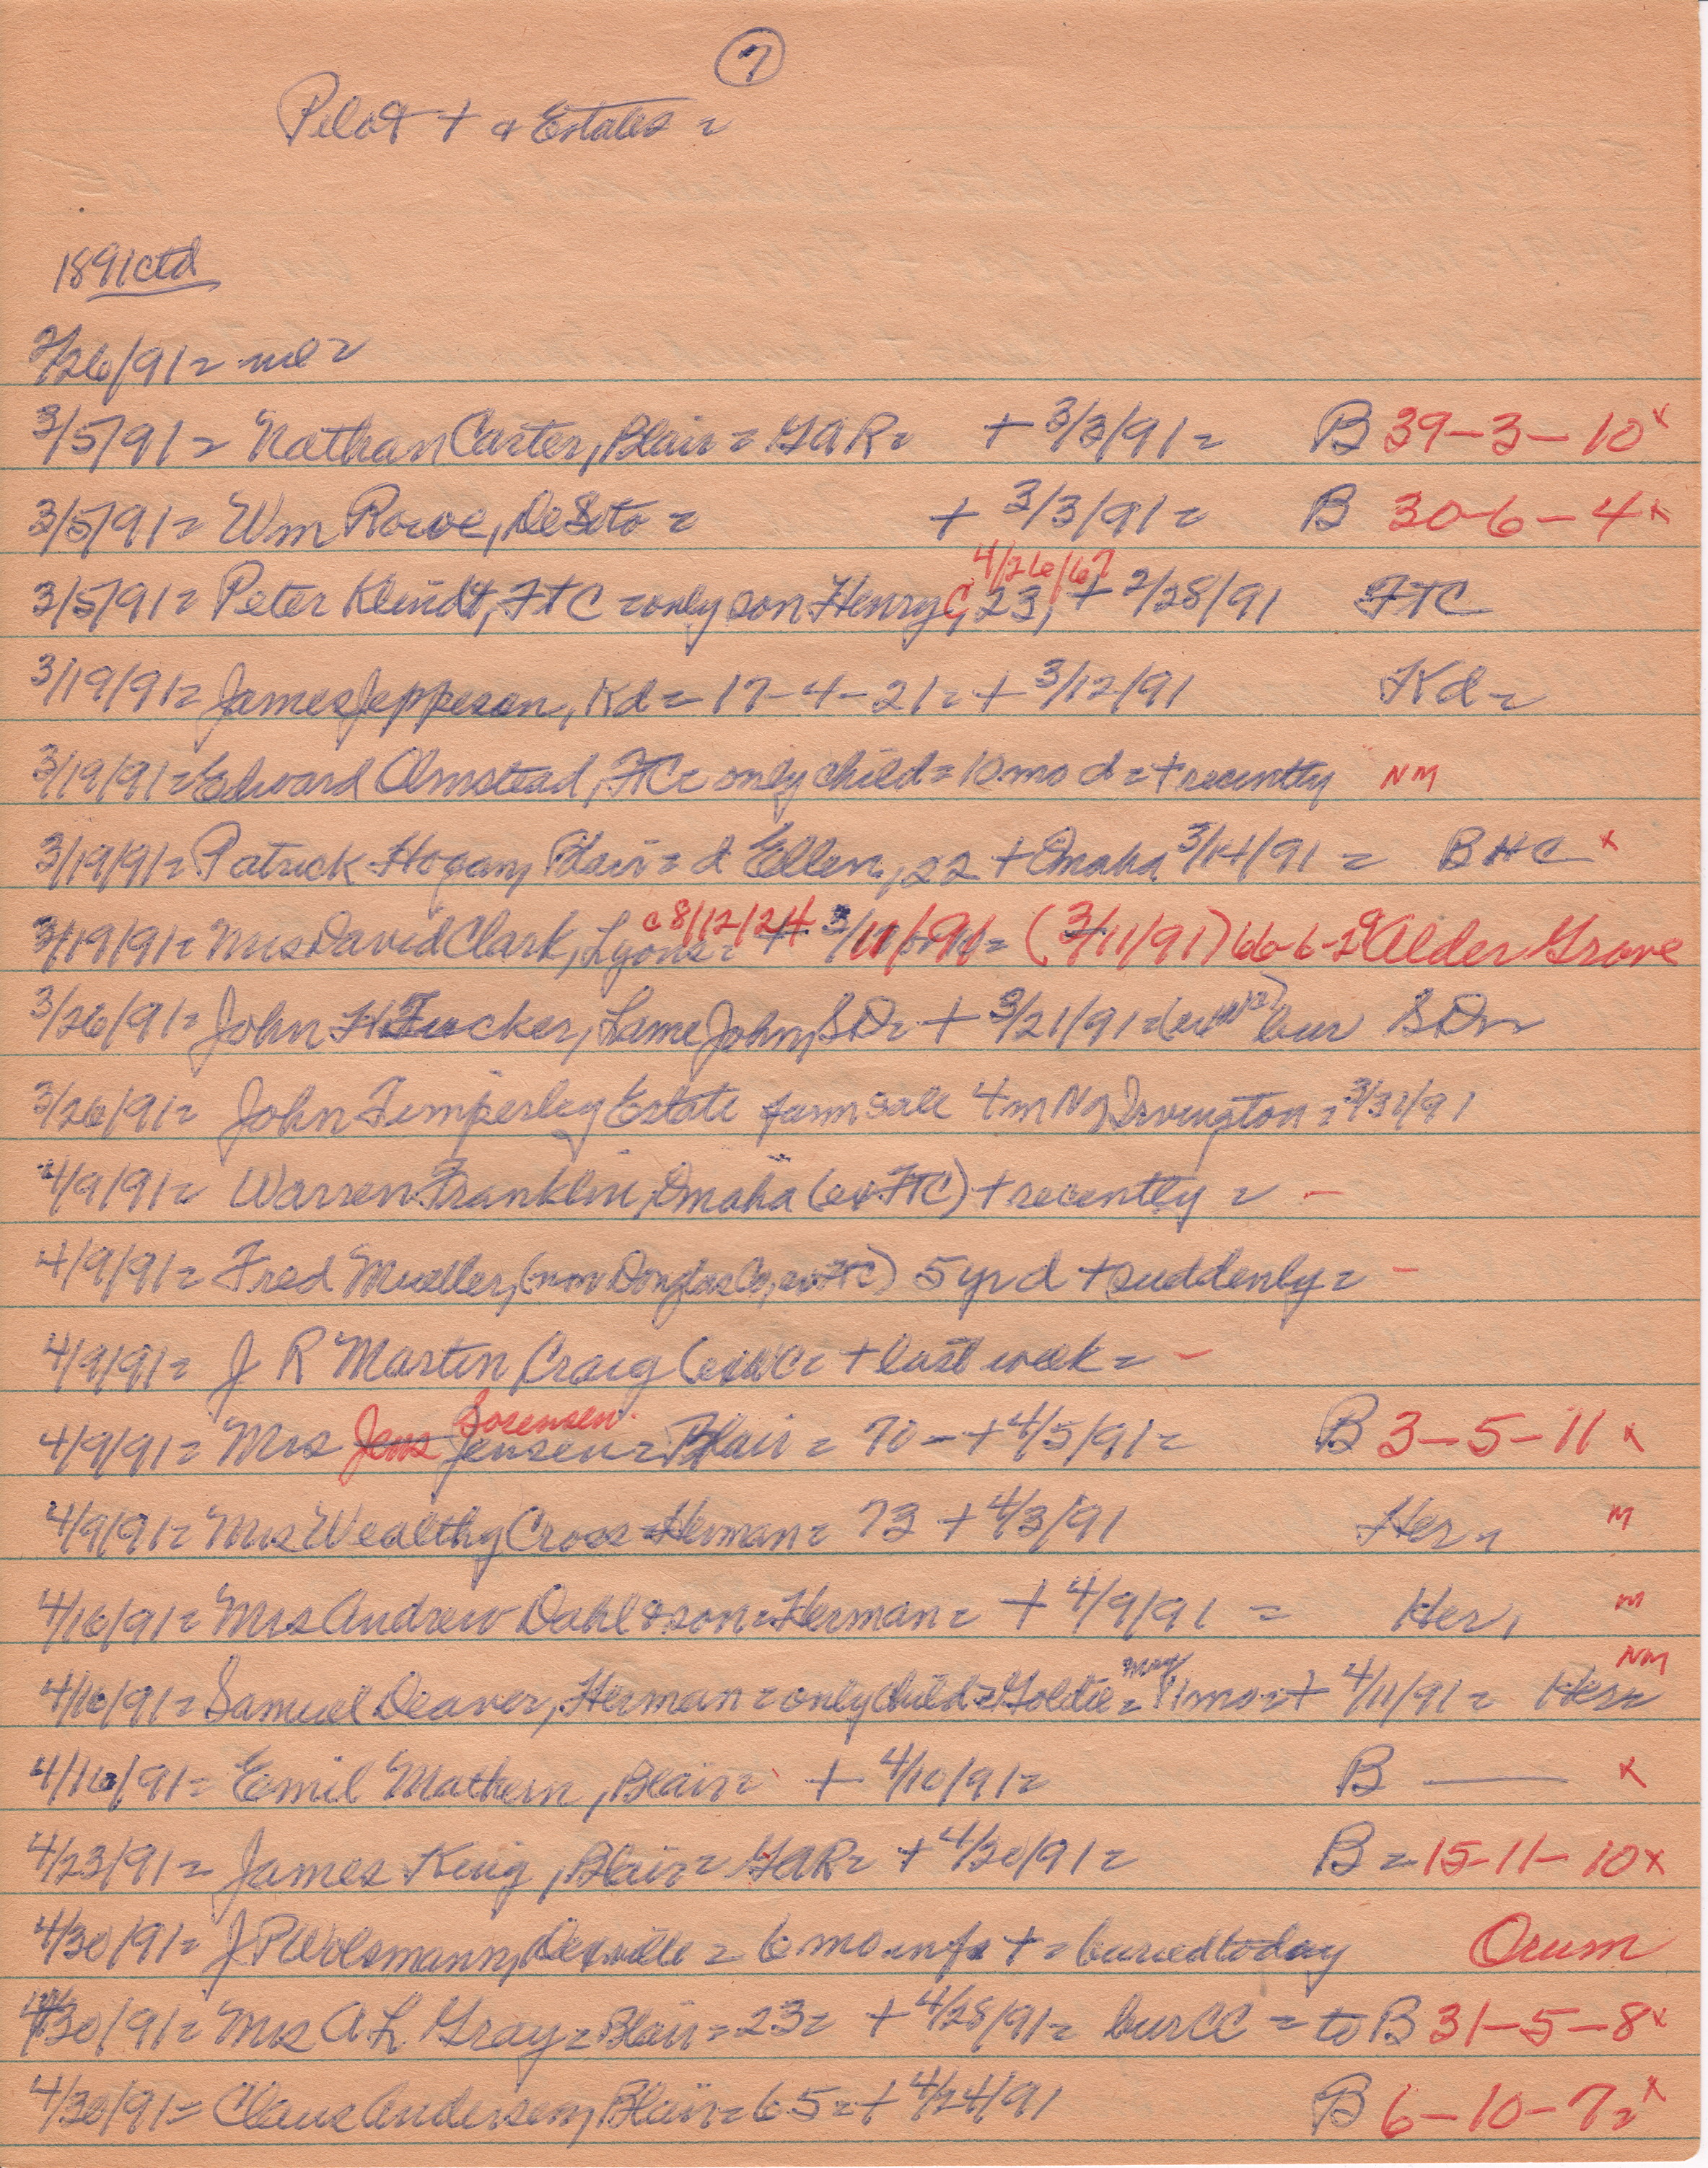 7
Pilot + & Estates =
1891 ctd
2/26/91 = nil =
3/5/91 = Nathan Carter, Blair = GAR = + 3/3/91 = B 39-3-10 x
3/5/91 = Wm Rowe, DeSoto = + 3/3/91 = B 30-6-4 x
4/26/67
3/5/91 = Peter Klindt, FTC = only son Henry C, 23, + 2/28/91 FTC
3/19/91 = James Jeppesen, Kd = 17-4-21 = + 3/12/91 Kd =
3/19/91 = Edward Olmstead, FTC = only child = 10 mo d = + recently NM
3/19/91 = Patrick Hogan, Blair = d Ellen, 22 + Omaha 3/14/91 = BHC x
3/19/91 = Mrs David Clark, Lyons = c 8/12/24 + 3/11/91 = (3/11/91) 66-6-29 Alder Grove
3/26/91 = John H Tucker, Lame John, SD = + 3/21/91 = bur SD =
3/26/91 = John Timperley Estate farm sale 4m N of Irvington = 3/31/91
4/9/91 = Warren Franklin, Omaha (ex FTC) + recently = -
4/9/91 = Fred Mueller, (now Douglas Co, ex FTC) 5 yr d + suddenly = -
4/9/91 = J R Martin Craig (ex WC = + last week = -
Sorensen
4/9/91 = Mrs Jens Jensen = Blair = 70 - + 4/5/91 = B 3-5-11 x
4/9/91 = Mrs Wealthy Cross = Herman = 73 + 4/3/91 Her = M
4/16/91 = Mrs Andrew Dahl & son = Herman = + 4/9/91 = Her, M
4/16/91 = Samuel Deaver, Herman = only child = Goldie = May 11 mo = + 4/11/91 = Her = NM
4/16/91 = Emil Mathern, Blair = + 4/10/91 = B — x
4/23/91 = James King, Blair = GAR = + 4/20/91 = B = 15-11-10 x
4/30/91 = J P Wolsmann, Dexville = 6 mo inf = + = buried today Orum
4/30/91 = Mrs A L Gray = Blair = 23 = + 4/28/91 = bur CC = to B 31-5-8 x
4/30/91 = Claus Andersen, Blair = 65 = + 4/24/91 B 6-10-7 = x